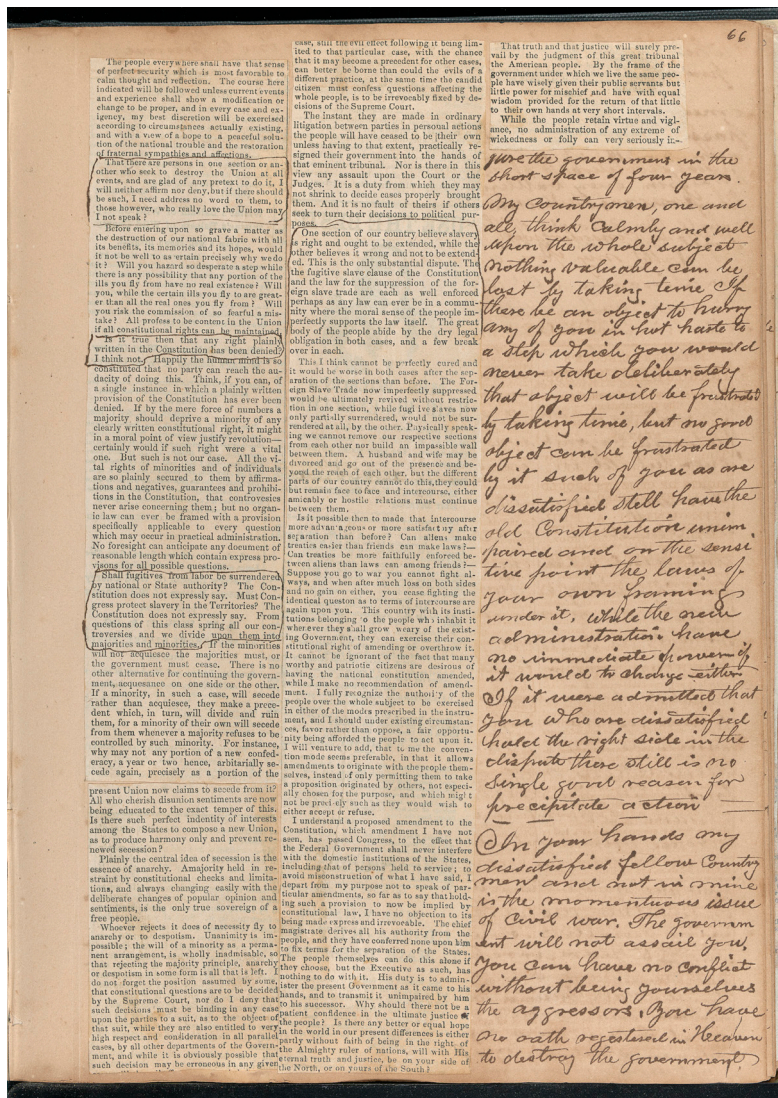 66
The people everywhere shall have that sense
of perfect security which is most favorable to
calm thought and reflection. The course here
indicated will be followed unless current events
and experience shall show a modification or
change to be proper, and in every case and ex-
igency, my best discretion will be exercised
according to circumstances actually existing,
and with a view of a hope to a peaceful solu-
tion of the national trouble and the restoration
of fraternal sympathies and affections.
That there are persons in one section or an-
other who seek to destroy the Union at all
events, and are glad of any pretext to do it, I
will neither affirm nor deny, but if there should
be such, I need address no word to them, to
those however, who really love the Union may
I not speak?
Before entering upon so grave a matter as
the destruction of our national fabric with all
its benefits, its memories and its hopes, would
it not be well to as ertain precisely why we do
it? Will you hazard so desperate a step while
there is any possibility that any portion of the
ills you fly from have no real existence? Will
you, while the certain ills you fly to are great-
er than all the real ones you fly from? Will
you risk the commission of so fearful a mis-
take? All profess to be content in the Union
if all constitutional rights can be maintained.
Is it true then that any right plainly
written in the Constitution has been denied?
I think not. Happily the human mind is so
constituted that no party can reach the au-
dacity of doing this. Think, if you can, of
a single instance in which a plainly written
provision of the Constitution has ever been
denied. If by the mere force of numbers a
majority should deprive a minority of any
clearly written constitutional right, it might
in a moral point of view justify revolution—
certainly would if such right were a vital
one. But such is not our case. All the vi-
tal rights of minorities and of individuals
are so plainly secured to them by affirma-
tions and negatives, guarantees and prohibi-
tions in the Constitution, that controvesics
never arise concerning them; but no organ-
ic law can ever be framed with a provision
specifically applicable to every question
which may occur in practical administration.
No foresight can anticipate any document of
reasonable length which contain express pro-
visons for all possible questions.
Shall fugitives from labor be surrendered
by national or State authority? The Con-
stitution does not expressly say. Must Con-
gress protect slavery in the Territories? The
Constitution does not expressly say. From
questions of this class spring all our con-
troversies and we divide upon them into
majorities and minorities. If the minorities
will not acquiesce the majorities must, or
the government must cease. There is no
other alternative for continuing the govern-
ment, acquesance on one side or the other.
If a minority, in such a case, will secede
rather than acquiesce, they make a prece-
dent which, in turn, will divide and ruin
them, for a minority of their own will secede
from them whenever a majority refuses to be
controlled by such minority. For instance,
why may not any portion of a new confed-
eracy, a year or two hence, arbitarially se-
cede again, precisely as a portion of the
present Union now claims to secede from it?
All who cherish disunion sentiments are now
being educated to the exact temper of this.
Is there such perfect indentity of interests
among the States to compose a new Union,
as to produce harmony only and prevent re-
newed secession?
Plainly the central idea of secession is the
essence of anarchy. A majority held in re-
straint by constitutional checks and limita-
tions, and always changing easily with the
deliberate changes of popular opinion and
sentiments, is the only true sovereign of a
free people.
Whoever rejects it does of necessity fly to
anarchy or to despotism. Unanimity is im-
possible; the will of a minority as a perma-
nent arrangement, is wholly inadmissible, so
that rejecting the majority principle, anarchy
or despotism in some form is all that is left. I
do not forget the position assumed by some,
that constitutional questions are to be decided
by the Supreme Court, nor do I deny that
such decisions must be binding in any case
upon the parties to a suit, as to the object of
that suit, while they are also entitled to very
high respect and consideration in all parallel
cases, by all other departments of the Govern-
ment, and while it is obviously possible that
such decision may be erroneous in any given
case, still the evil effect following it being lim-
ited to that particular case, with the chance
that it may become a precedent for other cases,
can better be borne than could the evils of a
different practice, at the same time the candid
citizen must confess questions affecting the
whole people, is to be irrevocably fixed by de-
cisions of the Supreme Court.
The instant they are made in ordinary
litigation between parties in personal actions
the people will have ceased to be their own
unless having to that extent, practically re-
signed their government into the hands of
that eminent tribunal. Nor is there in this
view any assault upon the Court or the
Judges. It is a duty from which they may
not shrink to decide cases properly brought
them. And it is no fault of theirs if others
seek to turn their decisions to political pur-
poses.
One section of our country believe slavery
is right and ought to be extended, while the
other believes it wrong and not to be extend-
ed. This is the only substantial dispute. The
fugitive slave clause of the Constitution
and the law for the suppression of the for-
eign slave trade, are each as well enforced
perhaps as any law can ever be in a commu-
nity where the moral sense of the people im-
perfectly supports the law itself. The great
body of the people abide by the dry legal
obligation in both cases, and a few break
over in each.
This I think cannot be perfectly cured and
it would be worse in both cases after the sep-
aration of the sections than before. The For-
eign Slave Trade now imperfectly suppressed
would be ultimately revived without restric-
tion in one section, while fugitive slaves now
only partially surrendered, would not be sur-
rendered at all, by the other. Physically speak-
ing we cannot remove our respective sections
from each other nor build an impassible wall
between them. A husband and wife may be
divorced and go out of the presence and be-
yond the reach of each other, but the different
parts of our country cannot do this, they could
but remain face to face and intercourse, either
amicably or hostile relations must continue
between them.
Is it possible then to made that intercourse
more advantageous or more satisfactory after
separation than before? Can aliens make
treaties easier than friends can make laws?—
Can treaties be more faithfully enforced be-
tween aliens than laws can among friends?—
Suppose you go to war you cannot fight al-
ways, and when after much loss on both sides
and no gain on either, you cease fighting the
identical question as to terms of intercourse are
again upon you. This country with its insti-
tutions belonging to the people who inhabit it
wherever they shall grow weary of the exist-
ing Government, they can exercise their con-
stitutional right of amending or overthrow it.
It cannot be ignorant of the fact that many
worthy and patriotic citizens are desirous of
having the national constitution amended,
while I make no recommendation of amend-
ment. I fully recognize the authority of the
people over the whole subject to be exercised
in either of the modes prescribed in the instru-
ment, and I should under existing circumstan-
ces, favor rather than oppose, a fair opportu-
nity being afforded the people to act upon it.
I will venture to add, that to me the conven-
tion mode seems preferable, in that it allows
amendments to originate with the people them-
selves, instead of only permitting them to take
a proposition originated by others, not especi-
ally chosen for the purpose, and which might
not be precisely such as they would wish to
either accept or refuse.
I understand a proposed amendment to the
Constitution, which amendment I have not
seen, has passed Congress, to the effect that
the Federal Government shall never interfere
with the domestic institutions of the States,
including that of persons held to service; to
avoid misconstruction of what I have said, I
depart from my purpose not to speak of par-
ticular amendments, so far as to say that hold-
ing such a provision to now be implied by
constitutional law, I have no objection to its
being made express and irrevocable. The chief
magistrate derives all his authority from the
people, and they have conferred none upon him
to fix terms for the separation of the States.
The people themselves can do this alone if
they choose, but the Executive as such, has
nothing to do with it. His duty is to admin-
ister the present Government as it came to his
hands, and to transmit it unimpaired by him
to his successor. Why should there not be a
patient confidence in the ultimate justice of
the people? Is there any better or equal hope
in the world in our present differences is either
partly without faith of being in the right. of
the Almighty ruler of nations, will with His
eternal truth and justice, be on your side of
the North, or on yours of the South?
That truth and that justice will surely pre-
vail by the judgment of this great tribunal
the American people. By the frame of the
government under which we live the same peo-
ple have wisely given their public servants but
little power for mischief and have with equal
wisdom provided for the return of that little
to their own hands at very short intervals.
While the people retain virtue and vigil-
ance, no administration of any extreme of
wickedness or folly can very seriously in-
jure the government in the
short space of four year.
My Countrymen, one and
all, think calmly and well
upon the whole subject
nothing valuable can be
lost by taking time If
there be an object to hurry
any of you in hot haste to
a step which you would
never take deliberately
that object will be frustrated
by taking time, but no good
object can be frustrated
by it such of you as are
dissatisfied still have the
old Constitution unim
paired and on the sensi
tive point the laws of
your own framing
under it. While the new
administration have
no immediate power if
it would to change either
If it were admitted that
you who are dissatisfied
hold the right side in the
dispute there still is no
single good reason for
precipitate action
In your hands my
dissatisfied fellow Country
men and not in mine
is the momentuous issue
of Civil war. The governm
ent will not assail you.
You can have no conflict
without being yourselves
the aggressors. You have
no oath registered in Heaven
to destroy the government